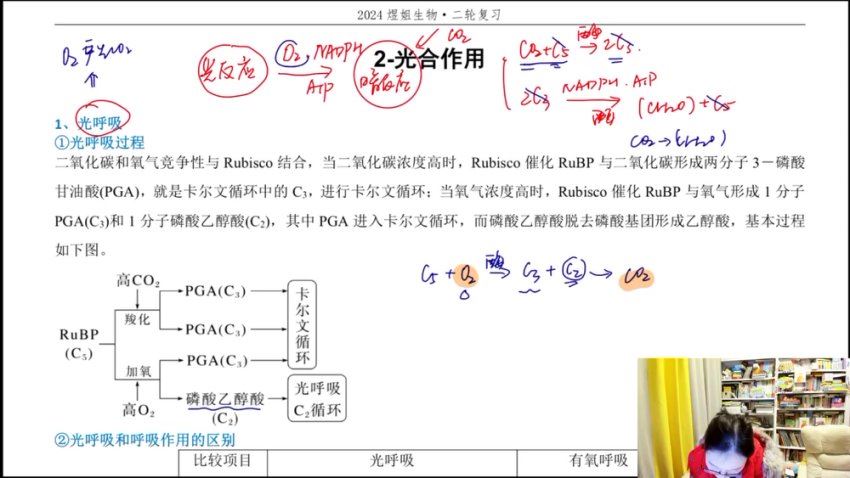 2024 煜姐生物·二轮复习
CO₂
O₂
光反应 O₂, NADPH ATP 暗反应
2-光合作用
CO₂+C₅ 酶→ 2C₃.
2C₃ NADPH.ATP 酶→ (CH₂O)+C₅
CO₂→(CH₂O)
1、光呼吸
①光呼吸过程
二氧化碳和氧气竞争性与 Rubisco 结合，当二氧化碳浓度高时，Rubisco 催化 RuBP 与二氧化碳形成两分子 3－磷酸
甘油酸(PGA)，就是卡尔文循环中的 C₃，进行卡尔文循环；当氧气浓度高时，Rubisco 催化 RuBP 与氧气形成 1 分子
PGA(C₃)和 1 分子磷酸乙醇酸(C₂)，其中 PGA 进入卡尔文循环，而磷酸乙醇酸脱去磷酸基团形成乙醇酸，基本过程
如下图。
C₅ + O₂ 酶→ C₃ + C₂ → CO₂
高CO₂
羧化
PGA(C₃)
PGA(C₃)
卡尔文循环
RuBP
(C₅)
PGA(C₃)
加氧
高O₂
磷酸乙醇酸
(C₂)
光呼吸
C₂循环
②光呼吸和呼吸作用的区别
比较项目 光呼吸 有氧呼吸